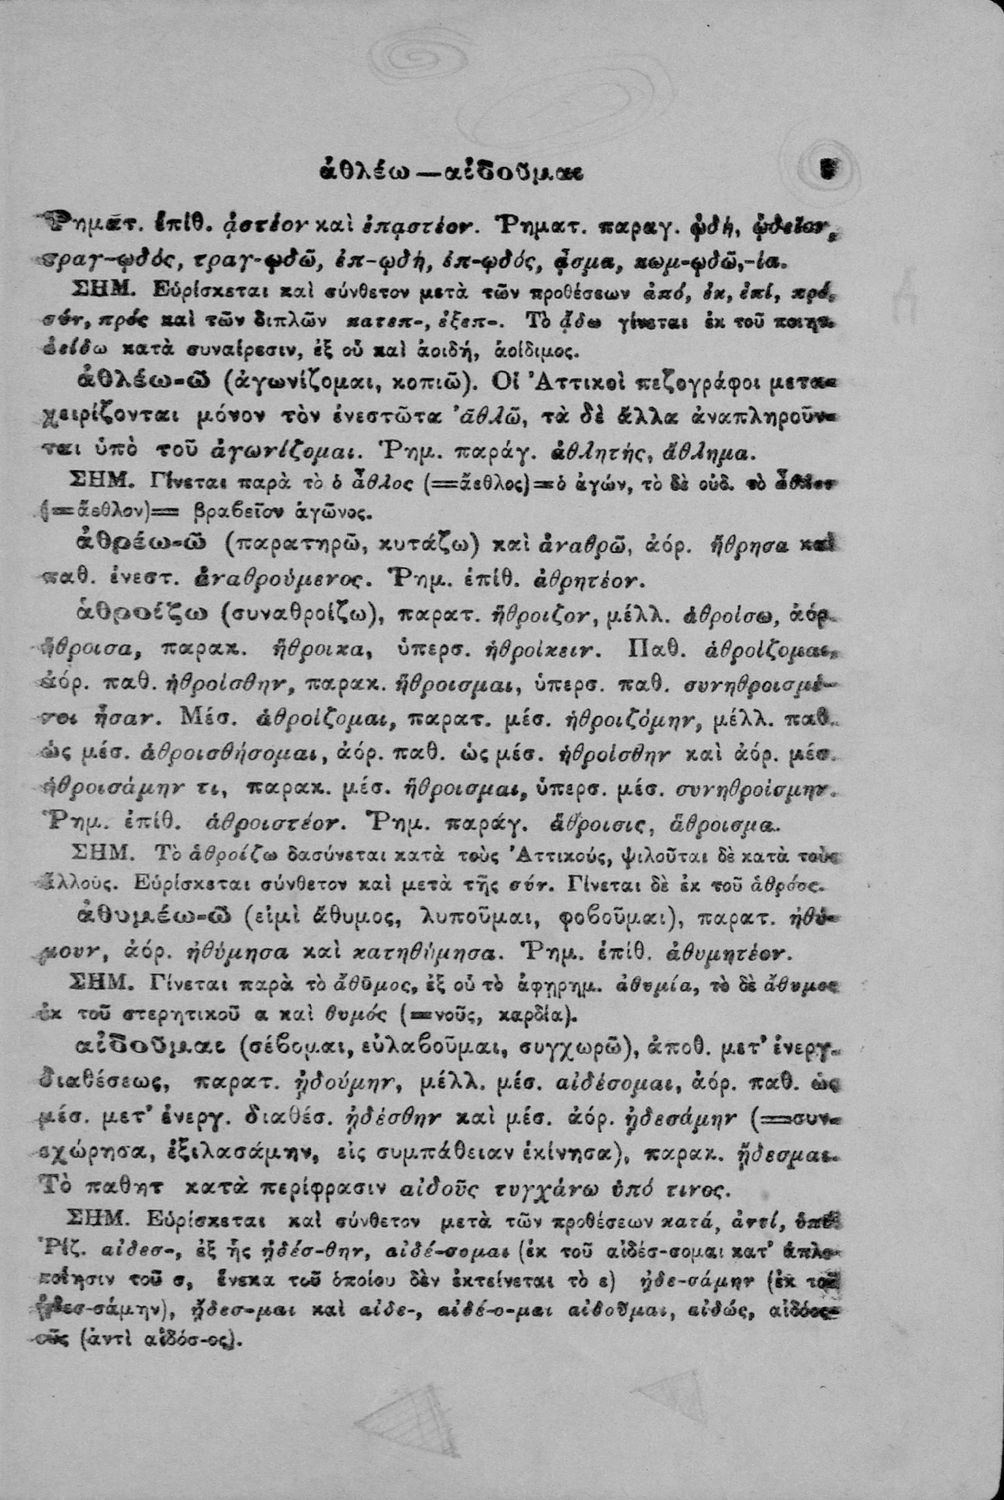 ἀθλέω—αἰδοῦμαι
Ῥηματ. ἐπίθ. ᾀστέον καὶ ἐπᾳστέον. Ῥηματ. παραγ. ᾠδή, ᾠδεῖον,
τραγ-ῳδός, τραγ-ῳδῶ, ἐπ-ῳδή, ἐπ-ῳδός, ᾆσμα, κωμ-ῳδῶ,-ία.
ΣΗΜ. Εὑρίσκεται καὶ σύνθετον μετὰ τῶν προθέσεων ἀπό, ἐκ, ἐπί, πρό,
σύν, πρός καὶ τῶν διπλῶν κατεπ-, ἐξεπ-. Τὸ ᾄδω γίνεται ἐκ τοῦ ποιητ.
ἀείδω κατὰ συναίρεσιν, ἐξ οὗ καὶ ἀοιδή, ἀοίδιμος.
ἀθλέω-ῶ (ἀγωνίζομαι, κοπιῶ). Οἱ Ἀττικοὶ πεζογράφοι μετα-
χειρίζονται μόνον τὸν ἐνεστῶτα ἀθλῶ, τὰ δὲ ἄλλα ἀναπληροῦν-
ται ὑπὸ τοῦ ἀγωνίζομαι. Ῥημ. παράγ. ἀθλητής, ἄθλημα.
ΣΗΜ. Γίνεται παρὰ τὸ ὁ ἆθλος (=ἄεθλος)=ὁ ἀγών, τὸ δὲ οὐδ. τὸ ἆθλον
(=ἄεθλον)= βραβεῖον ἀγῶνος.
ἀθρέω-ῶ (παρατηρῶ, κυτάζω) καὶ ἀναθρῶ, ἀόρ. ἤθρησα καὶ
παθ. ἐνεστ. ἀναθρούμενος. Ῥημ. ἐπίθ. ἀθρητέον.
ἁθροίζω (συναθροίζω), παρατ. ἤθροιζον, μέλλ. ἁθροίσω, ἀόρ.
ἤθροισα, παρακ. ἤθροικα, ὑπερσ. ἡθροίκειν. Παθ. ἁθροίζομαι,
ἀόρ. παθ. ἡθροίσθην, παρακ. ἤθροισμαι, ὑπερσ. παθ. συνηθροισμέ-
νοι ἦσαν. Μέσ. ἁθροίζομαι, παρατ. μέσ. ἡθροιζόμην, μέλλ. παθ.
ὡς μέσ. ἁθροισθήσομαι, ἀόρ. παθ. ὡς μέσ. ἡθροίσθην καὶ ἀόρ. μέσ.
ἡθροισάμην τι, παρακ. μέσ. ἤθροισμαι, ὑπερσ. μέσ. συνηθροίσμην.
Ῥημ. ἐπίθ. ἁθροιστέον. Ῥημ. παράγ. ἅθροισις, ἅθροισμα.
ΣΗΜ. Τὸ ἁθροίζω δασύνεται κατὰ τοὺς Ἀττικούς, ψιλοῦται δὲ κατὰ τοὺς
ἄλλους. Εὑρίσκεται σύνθετον καὶ μετὰ τῆς σύν. Γίνεται δὲ ἐκ τοῦ ἁθρόος.
ἀθυμέω-ῶ (εἰμὶ ἄθυμος, λυποῦμαι, φοβοῦμαι), παρατ. ἠθύ-
μουν, ἀόρ. ἠθύμησα καὶ κατηθύμησα. Ῥημ. ἐπίθ. ἀθυμητέον.
ΣΗΜ. Γίνεται παρὰ τὸ ἄθυμος, ἐξ οὗ τὸ ἀφῃρημ. ἀθυμία, τὸ δὲ ἄθυμος
ἐκ τοῦ στερητικοῦ α καὶ θυμός (=νοῦς, καρδία).
αἰδοῦμαι (σέβομαι, εὐλαβοῦμαι, συγχωρῶ), ἀποθ. μετ᾽ ἐνεργ.
διαθέσεως, παρατ. ᾐδούμην, μέλλ. μέσ. αἰδέσομαι, ἀόρ. παθ. ὡς
μέσ. μετ᾽ ἐνεργ. διαθέσ. ᾐδέσθην καὶ μέσ. ἀόρ. ᾐδεσάμην (=συν-
εχώρησα, ἐξιλασάμην, εἰς συμπάθειαν ἐκίνησα), παρακ. ᾔδεσμαι.
Τὸ παθητ κατὰ περίφρασιν αἰδοῦς τυγχάνω ὑπό τινος.
ΣΗΜ. Εὑρίσκεται καὶ σύνθετον μετὰ τῶν προθέσεων κατά, ἀντί, ὑπό.
Ῥίζ. αἰδεσ-, ἐξ ἧς ᾐδέσ-θην, αἰδέ-σομαι (ἐκ τοῦ αἰδέσ-σομαι κατ᾽ ἁπλο-
ποίησιν τοῦ σ, ἕνεκα τοῦ ὁποίου δὲν ἐκτείνεται τὸ ε) ᾐδε-σάμην (ἐκ τοῦ
ᾐδεσ-σάμην), ᾔδεσ-μαι καὶ αἰδε-, αἰδέ-ο-μαι αἰδοῦμαι, αἰδώς, αἰδόος-
οῦς (ἀντὶ αἰδόσ-ος).